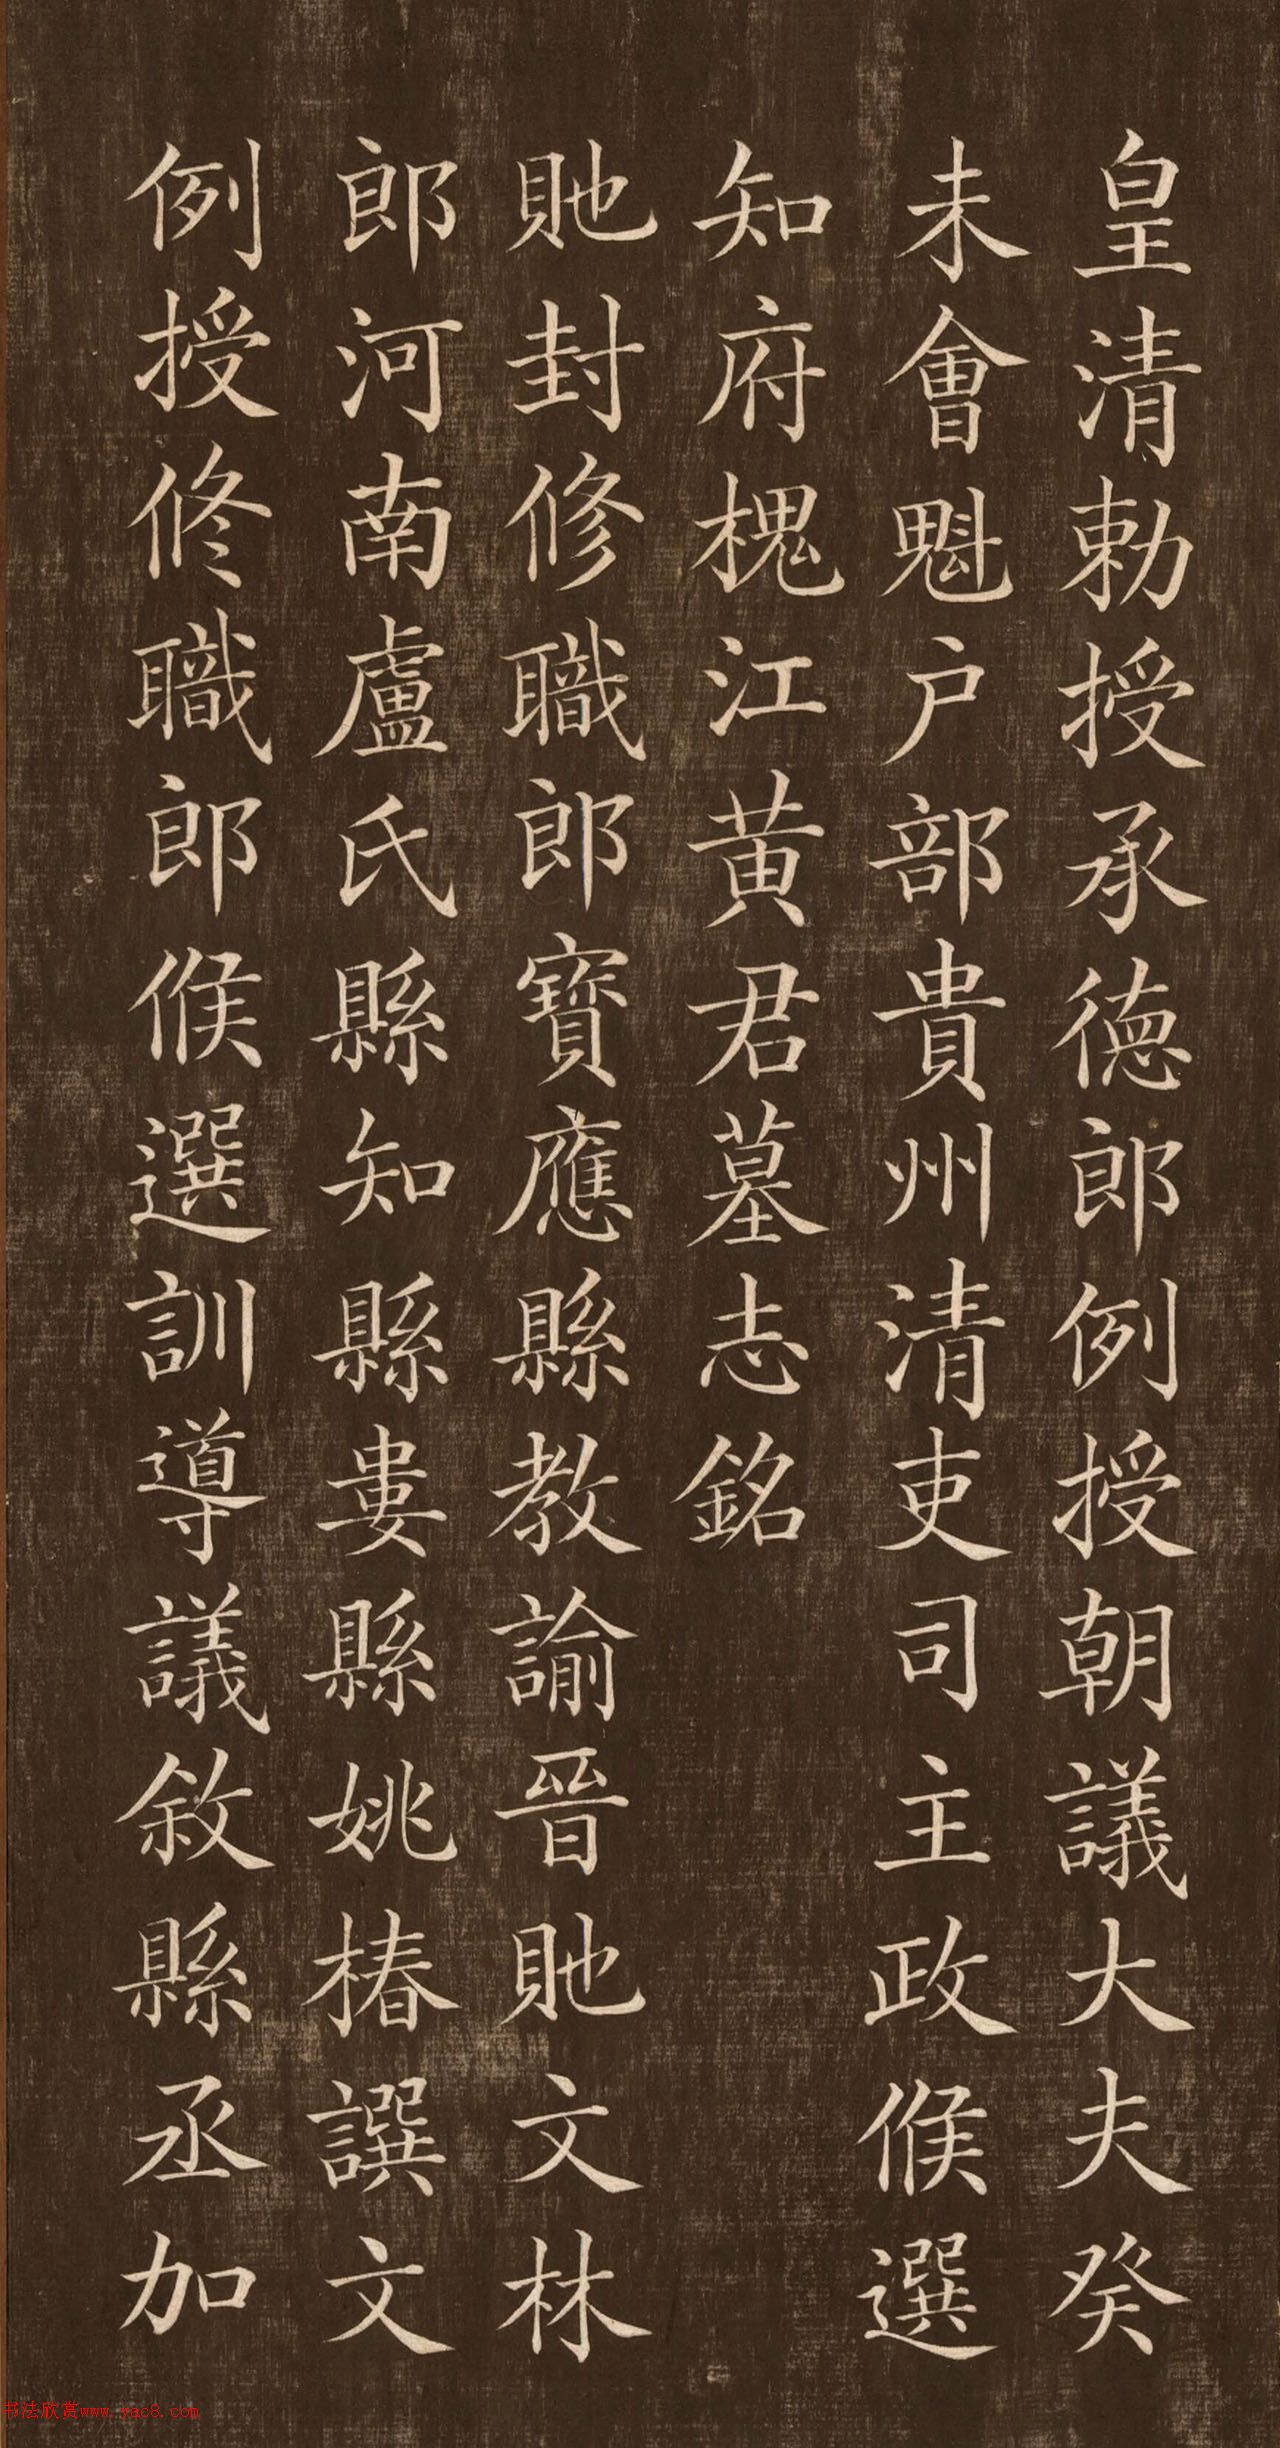 皇清勅授承徳郎例授朝議大夫癸
未會魁戶部貴州清吏司主政候選
知府槐江黃君墓志銘
貤封修職郎寶應縣教諭晉貤文林
郎河南盧氏縣知縣婁縣姚椿譔文
例授修職郎候選訓導議敘縣丞加
书法欣赏www.yac8.com